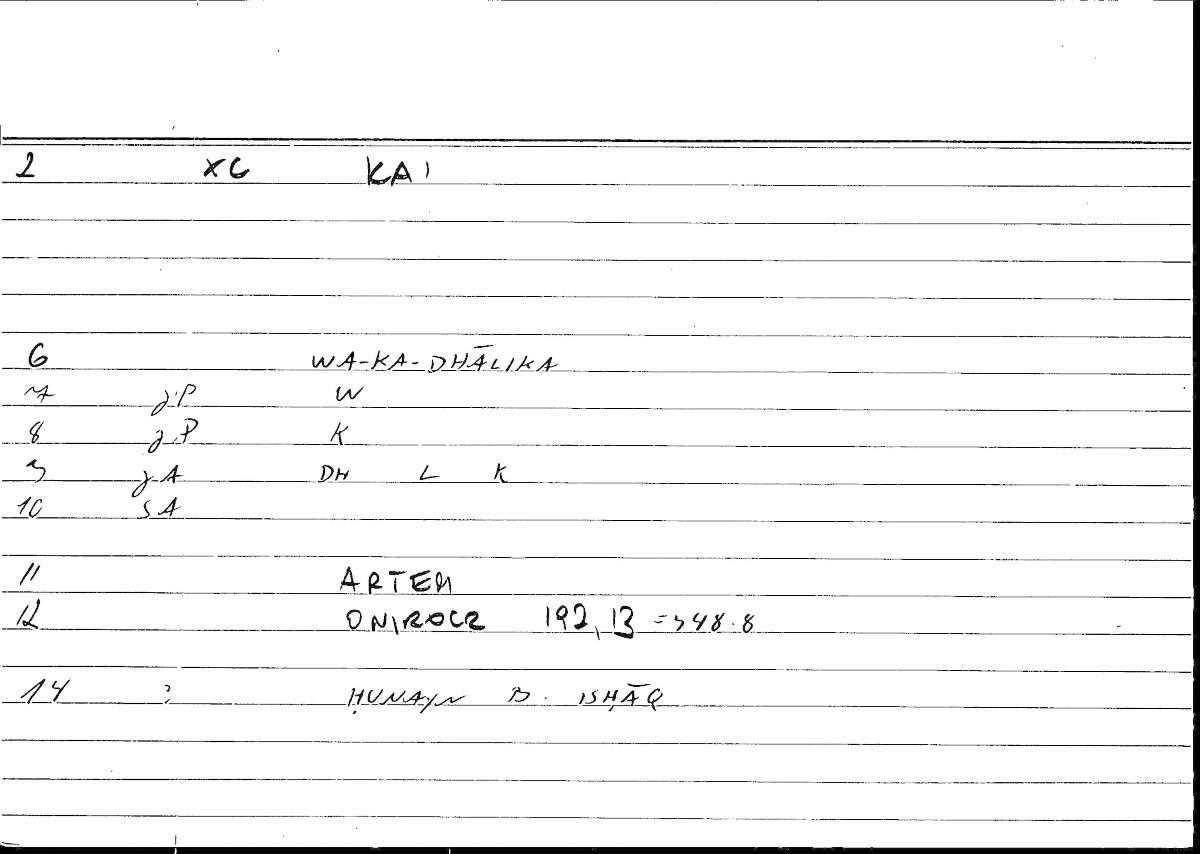 2 XC KAI
6 WA-KA-DHĀLIKA
7 J.P W
8 J.P K
9 JA DH L K
10 SA
11 ARTEM
12 ONIROCR 192,13 = 348.8
14 ? ḤUNAYN B. ISḤĀQ